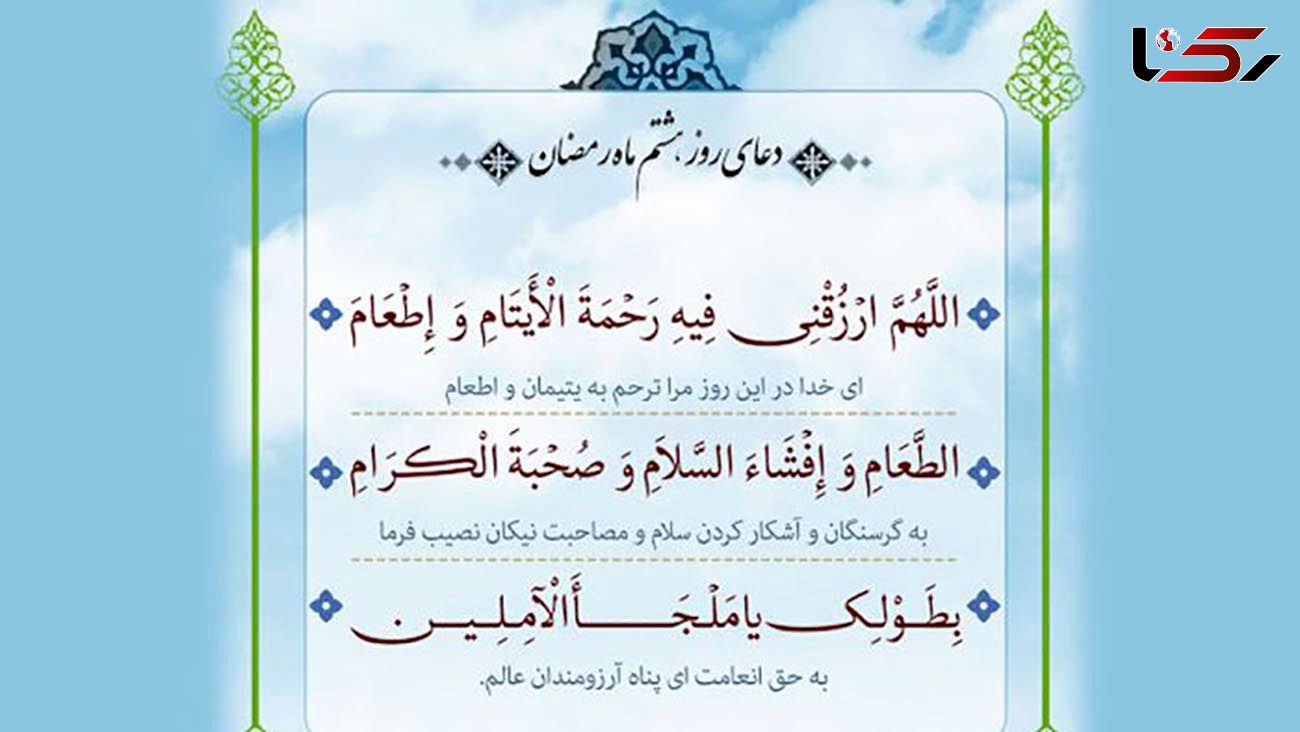 رکنا
دعای روز هشتم ماه رمضان
اللَّهُمَّ ارْزُقْنِی فِیهِ رَحْمَةَ الْأَیتَامِ وَ إِطْعَامَ
ای خدا در این روز مرا ترحم به یتیمان و اطعام
الطَّعَامِ وَ إِفْشَاءَ السَّلاَمِ وَ صُحْبَةَ الْکَرَامِ
به گرسنگان و آشکار کردن سلام و مصاحبت نیکان نصیب فرما
بِطَوْلِکَ یا مَلْجَأَ الْآمِلِینَ.
به حق انعامت ای پناه آرزومندان عالم.